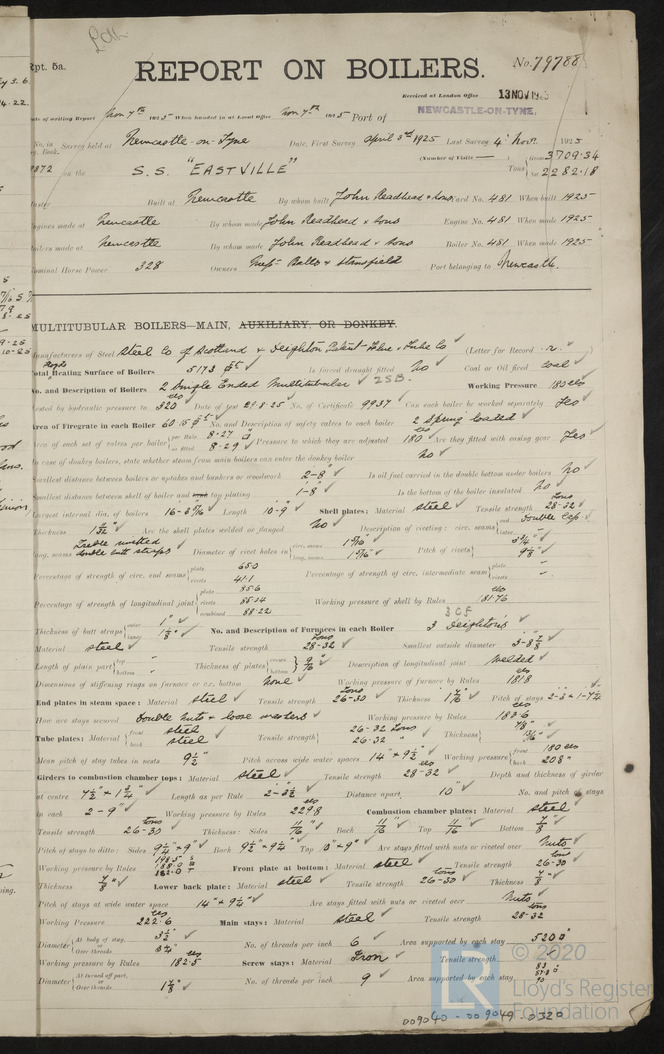 Rpt. 5a.
REPORT ON BOILERS.
No. 79788
Received at London Office 13 NOV 1925
NEWCASTLE-ON-TYNE.
Date of writing Report Nov 7th 1925 When handed in at Local Office Nov 7th 1925 Port of
No. in Survey held at Newcastle-on-Tyne Date, First Survey April 3rd 1925 Last Survey 4 Novr. 1925
Reg. Book.
(Number of Visits —) Gross 3709.34
on the S.S. "EASTVILLE" Tons Net 2282.18
Master Built at Newcastle By whom built John Readhead & Sons Yard No. 481 When built 1925
Engines made at Newcastle By whom made John Readhead & Sons Engine No. 481 When made 1925
Boilers made at Newcastle By whom made John Readhead & Sons Boiler No. 481 When made 1925
Nominal Horse Power 328 Owners Port belonging to Newcastle
MULTITUBULAR BOILERS—MAIN, AUXILIARY, OR DONKEY.
Manufacturers of Steel Steel Co of Scotland & Deighton Patent Flue & Tube Co (Letter for Record r.)
Total Heating Surface of Boilers 5173 Is forced draught fitted No Coal or Oil fired Coal
No. and Description of Boilers 2 Single Ended Multitubular 2SB. Working Pressure 180 lbs
Tested by hydraulic pressure to 320 Date of test 29.8.25 No. of Certificate 9937 Can each boiler be worked separately Yes
Area of Firegrate in each Boiler 60.15 No. and Description of safety valves to each boiler 2 Spring loaded
Area of each set of valves per boiler per Rule 8.27 as fitted 8.29 Pressure to which they are adjusted 180 Are they fitted with easing gear Yes
In case of donkey boilers, state whether steam from main boilers can enter the donkey boiler No
Smallest distance between boilers or uptakes and bunkers or woodwork 2-8" Is oil fuel carried in the double bottom under boilers No
Smallest distance between shell of boiler and tank top plating 1-8" Is the bottom of the boiler insulated No
Largest internal dia. of boilers 16-3 Length 10-9" Shell plates: Material Steel Tensile strength 28-32 Tons
Thickness Are the shell plates welded or flanged No Description of riveting: circ. seams end Double Lap
long. seams Treble riveted double butt straps Diameter of rivet holes in circ. seams long. seams Pitch of rivets
Percentage of strength of circ. end seams plate 65.0 rivets 41.1 Percentage of strength of circ. intermediate seam plate rivets
Percentage of strength of longitudinal joint plate 85.6 rivets 85.14 combined 88.22 Working pressure of shell by Rules 181.76 lbs
Thickness of butt straps outer 1" inner 1 1/8" No. and Description of Furnaces in each Boiler 3 Deightons 3 C F
Material Steel Tensile strength 28-32 Tons Smallest outside diameter 3-8 7/8"
Length of plain part top bottom Thickness of plates crown bottom 9/16" Description of longitudinal joint Welded
Dimensions of stiffening rings on furnace or c.c. bottom None Working pressure of furnace by Rules 181.8 lbs
End plates in steam space: Material Steel Tensile strength 26-30 Tons Thickness Pitch of stays
How are stays secured Double Nuts & loose washers Working pressure by Rules 183.6 lbs
Tube plates: Material front Steel back Steel Tensile strength 26-32 Tons 26-32 " Thickness 7/8" 13/16"
Mean pitch of stay tubes in nests 9 1/2" Pitch across wide water spaces 14" x 9 1/2" Working pressure front 180 lbs back 208 "
Girders to combustion chamber tops: Material Steel Tensile strength 28-32 Depth and thickness of girder
at centre 7 1/2" x 1 3/4" Length as per Rule 2-3 1/2 Distance apart 10" No. and pitch of stays
in each 2-9" Working pressure by Rules 229.8 lbs Combustion chamber plates: Material Steel
Tensile strength 26-30 Tons Thickness: Sides 11/16" Back 11/16" Top 11/16" Bottom 7/8"
Pitch of stays to ditto: Sides 9 1/4" x 9" Back 9 1/2" x 9 1/4" Top 10" x 9" Are stays fitted with nuts or riveted over Nuts
Working pressure by Rules 198.5 S 188.0 B 182.0 T Front plate at bottom: Material Steel Tensile strength 26-30 Tons
Thickness 7/8" Lower back plate: Material Steel Tensile strength 26-30 Tons Thickness 7/8"
Pitch of stays at wide water space 14" x 9 1/2" Are stays fitted with nuts or riveted over Nuts
Working Pressure 222.6 lbs Main stays: Material Steel Tensile strength 28-32 Tons
Diameter At body of stay, or Over threads 3 1/2" 3 3/4" No. of threads per inch 6 Area supported by each stay 520
Working pressure by Rules 182.5 lbs Screw stays: Material Iron Tensile strength
Diameter At turned off part, or Over threads 1 7/8" No. of threads per inch 9 Area supported by each stay
© 2020
LR
Lloyd's Register
Foundation
009040-009049-0320